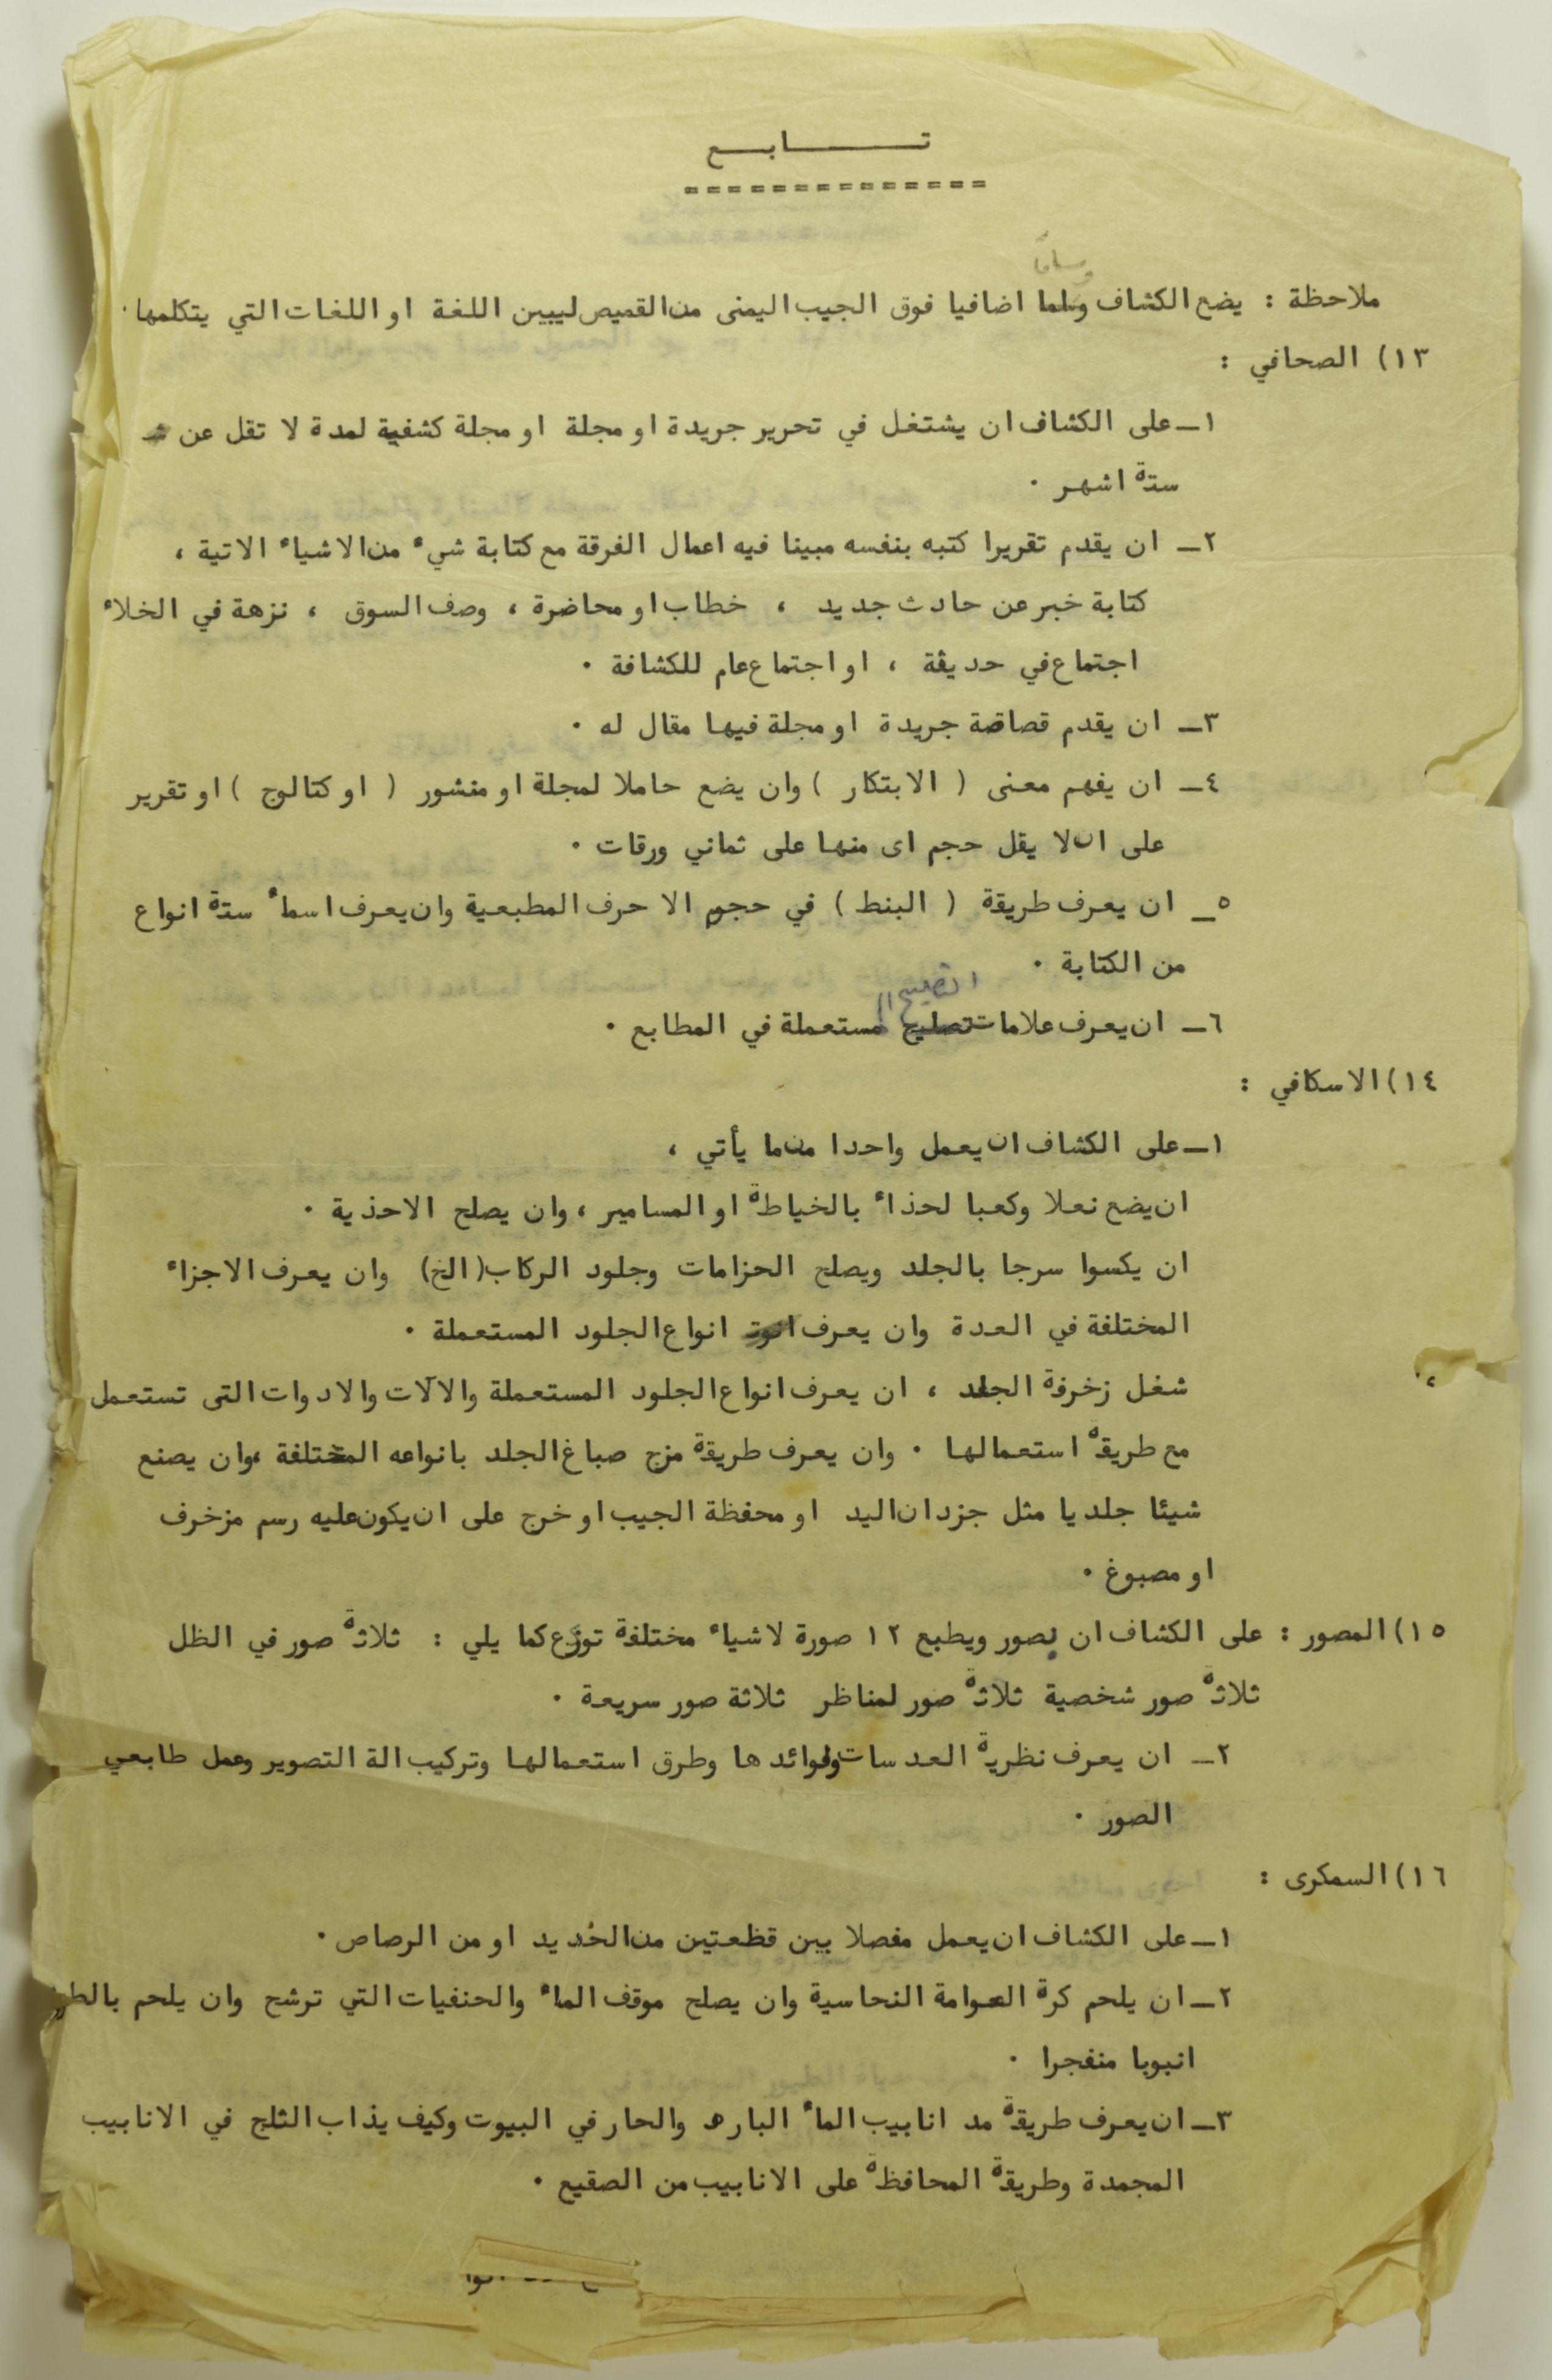 تـــــابـــع
==============
وساما
ملاحظة : يضع الكشاف وسلما اضافيا فوق الجيب اليمنى من القميص ليبين اللغة او اللغات التي يتكلمها ٠
١٣) الصحافي :
١ـ على الكشاف ان يشتغل في تحرير جريدة او مجلة او مجلة كشفية لمدة لا تقل عن
ستة اشهر ٠
٢ـ ان يقدم تقريرا كتبه بنفسه مبينا فيه اعمال الفرقة مع كتابة شيء من الاشياء الاتية ،
كتابة خبر عن حادث جديد ، خطاب او محاضرة ، وصف السوق ، نزهة في الخلاء
اجتماع في حديقة ، او اجتماع عام للكشافة ٠
٣ـ ان يقدم قصاصة جريدة او مجلة فيها مقال له ٠
٤ـ ان يفهم معنى ( الابتكار ) وان يضع حاملا لمجلة او منشور ( او كتالوج ) او تقرير
على ان لا يقل حجم اى منها على ثماني ورقات ٠
٥ـ ان يعرف طريقة ( البنط ) في حجم الا حرف المطبعية وان يعرف اسماء ستة انواع
من الكتابة ٠
التصليح ال
٦ـ ان يعرف علامات تصليح مستعملة في المطابع ٠
١٤) الاسكافي :
١ـ على الكشاف ان يعمل واحدا من ما يأتي ،
ان يضع نعلا وكعبا لحذاء بالخياطة او المسامير ، وان يصلح الاحذية ٠
ان يكسوا سرجا بالجلد ويصلح الحزامات وجلود الركاب (الخ) وان يعرف الاجزاء
المختلفة في العدة وان يعرف انواع الجلود المستعملة ٠
شغل زخرفة الجلد ، ان يعرف انواع الجلود المستعملة والالآت والادوات التى تستعمل ،
مع طريقة استعمالها ٠ وان يعرف طريقة مزج صباغ الجلد بانواعه المختلفة ،وان يصنع
شيئا جلديا مثل جزدان اليد او محفظة الجيب او خرج على ان يكون عليه رسم مزخرف
او مصبوغ ٠
١٥) المصور : على الكشاف ان يصور ويطبع ١٢ صورة لاشياء مختلفة توزع كما يلي : ثلاثة صور في الظل
ثلاثة صور شخصية ثلاثة صور لمناظر ثلاثة صور سريعة ٠
٢ـ ان يعرف نظرية العدسات وفوائدها وطرق استعمالها وتركيب الة التصوير وعمل طابعي
الصور ٠
١٦) السمكرى :
١ـ على الكشاف ان يعمل مفصلا بين قظعتين من الحديد او من الرصاص ٠
٢ـ ان يلحم كرة العوامة النحاسية وان يصلح موقف الماء والحنفيات التي ترشح وان يلحم
انبوبا منفجرا ٠
٣ـ ان يعرف طريقة مد انابيب الماء البارد والحار في البيوت وكيف يذاب الثلج في الانابيب
المجمدة وطريقة المحافظة على الانابيب من الصقيع ٠